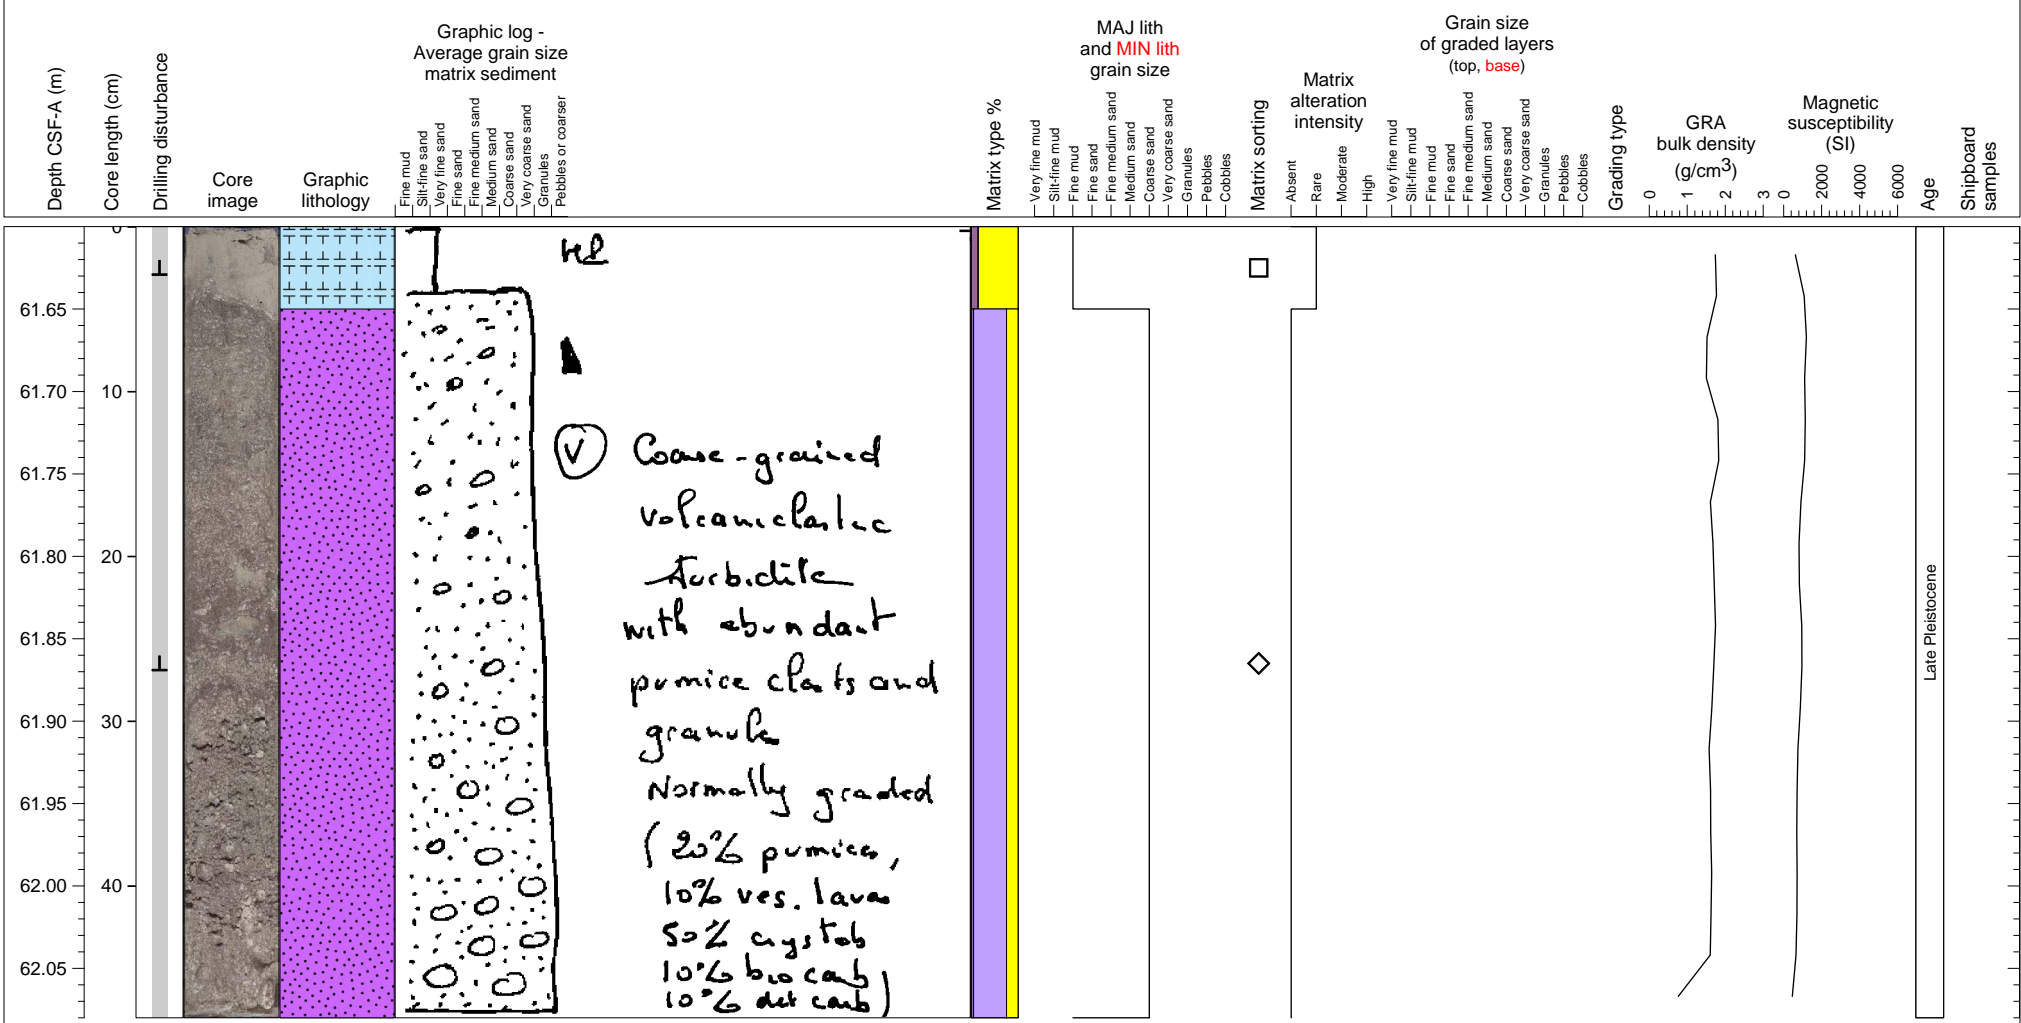 Depth CSF-A (m)
Core length (cm)
Drilling disturbance
Core
image
Graphic
lithology
Graphic log -
Average grain size
matrix sediment
Fine mud
Silt-fine sand
Very fine sand
Fine sand
Fine medium sand
Medium sand
Coarse sand
Very coarse sand
Granules
Pebbles or coarser
Matrix type %
MAJ lith
and MIN lith
grain size
Very fine mud
Silt-fine mud
Fine mud
Fine sand
Fine medium sand
Medium sand
Coarse sand
Very coarse sand
Granules
Pebbles
Cobbles
Matrix sorting
Matrix
alteration
intensity
Absent
Rare
Moderate
High
Grain size
of graded layers
(top, base)
Very fine mud
Silt-fine mud
Fine mud
Fine sand
Fine medium sand
Medium sand
Coarse sand
Very coarse sand
Granules
Pebbles
Cobbles
Grading type
GRA
bulk density
(g/cm3)
0 1 2 3
Magnetic
susceptibility
(SI)
0 2000 4000 6000
Age
Shipboard
samples
0
61.65
61.70
61.75
61.80
61.85
61.90
61.95
62.00
62.05
10
20
30
40
V
Coarse-grained
volcaniclastic
turbidite
with abundant
pumice clasts and
granule
Normally graded
(20% pumices,
10% ves. lavas
50% crystals
10% bio carb
10% det carb)
Late Pleistocene